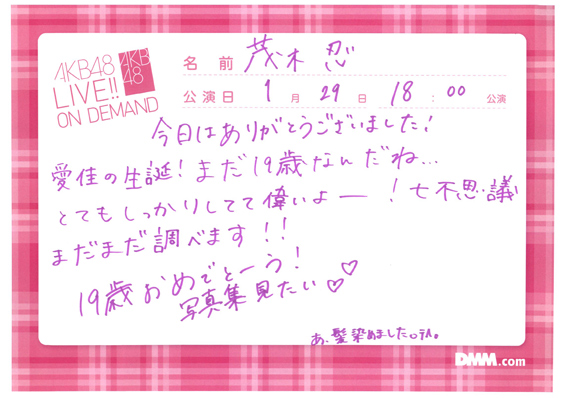 AKB48
LIVE!!
ON DEMAND
AKB
48
名前 茂木 忍
公演日 1月 29日 18:00 公演
今日はありがとうございました!
愛佳の生誕!まだ19歳なんだね...
とてもしっかりしてて偉いよー!七不思議
まだまだ調べます!!
19歳おめでとーう!
写真集見たい♡♡
あ、髪染めました
DMM.com